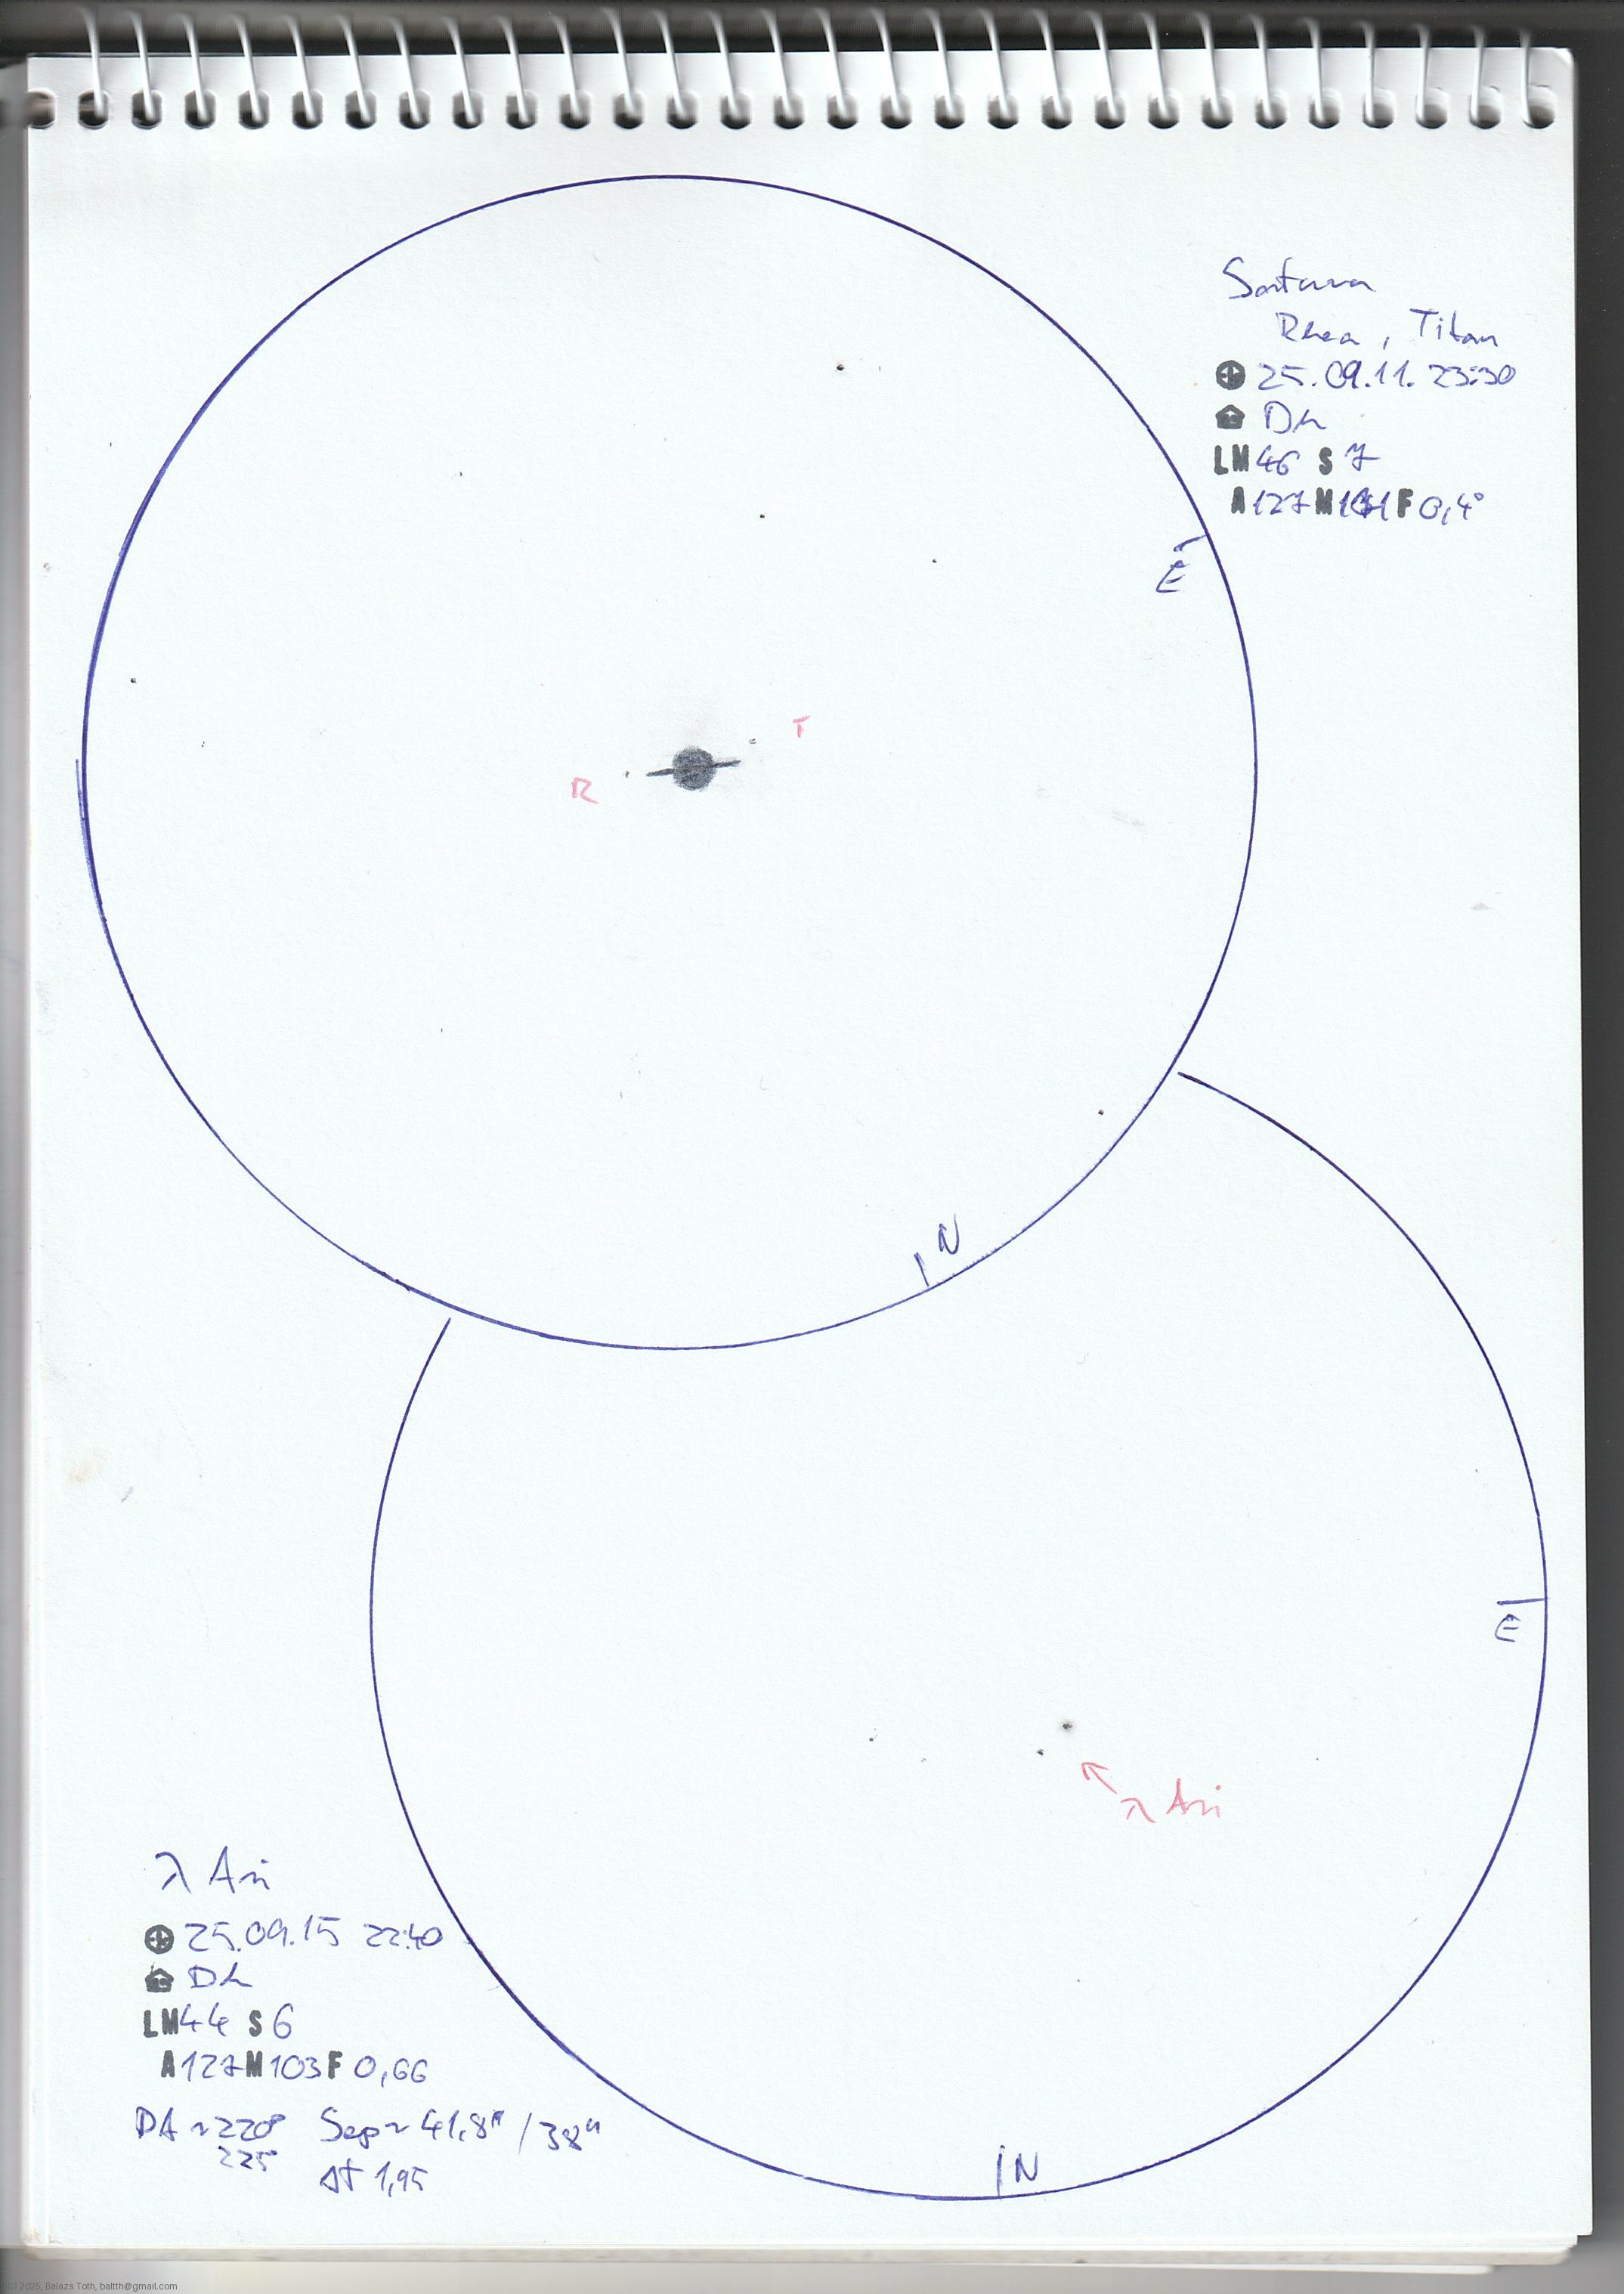 Saturn
Rhea, Titan
25.09.11. 23:30
Dh
LM 46 S 7
A 127 M F 0,4°
E
T
R
N
E
λ Ari
λ Ari
25.09.15 22:40
Dh
LM 44 S 6
A 127 M 103 F 0,66
PA ~220° Sep ~ 41,8" / 38"
225°
Δt 1,95
N
© 2025, Balazs Toth, baltth@gmail.com